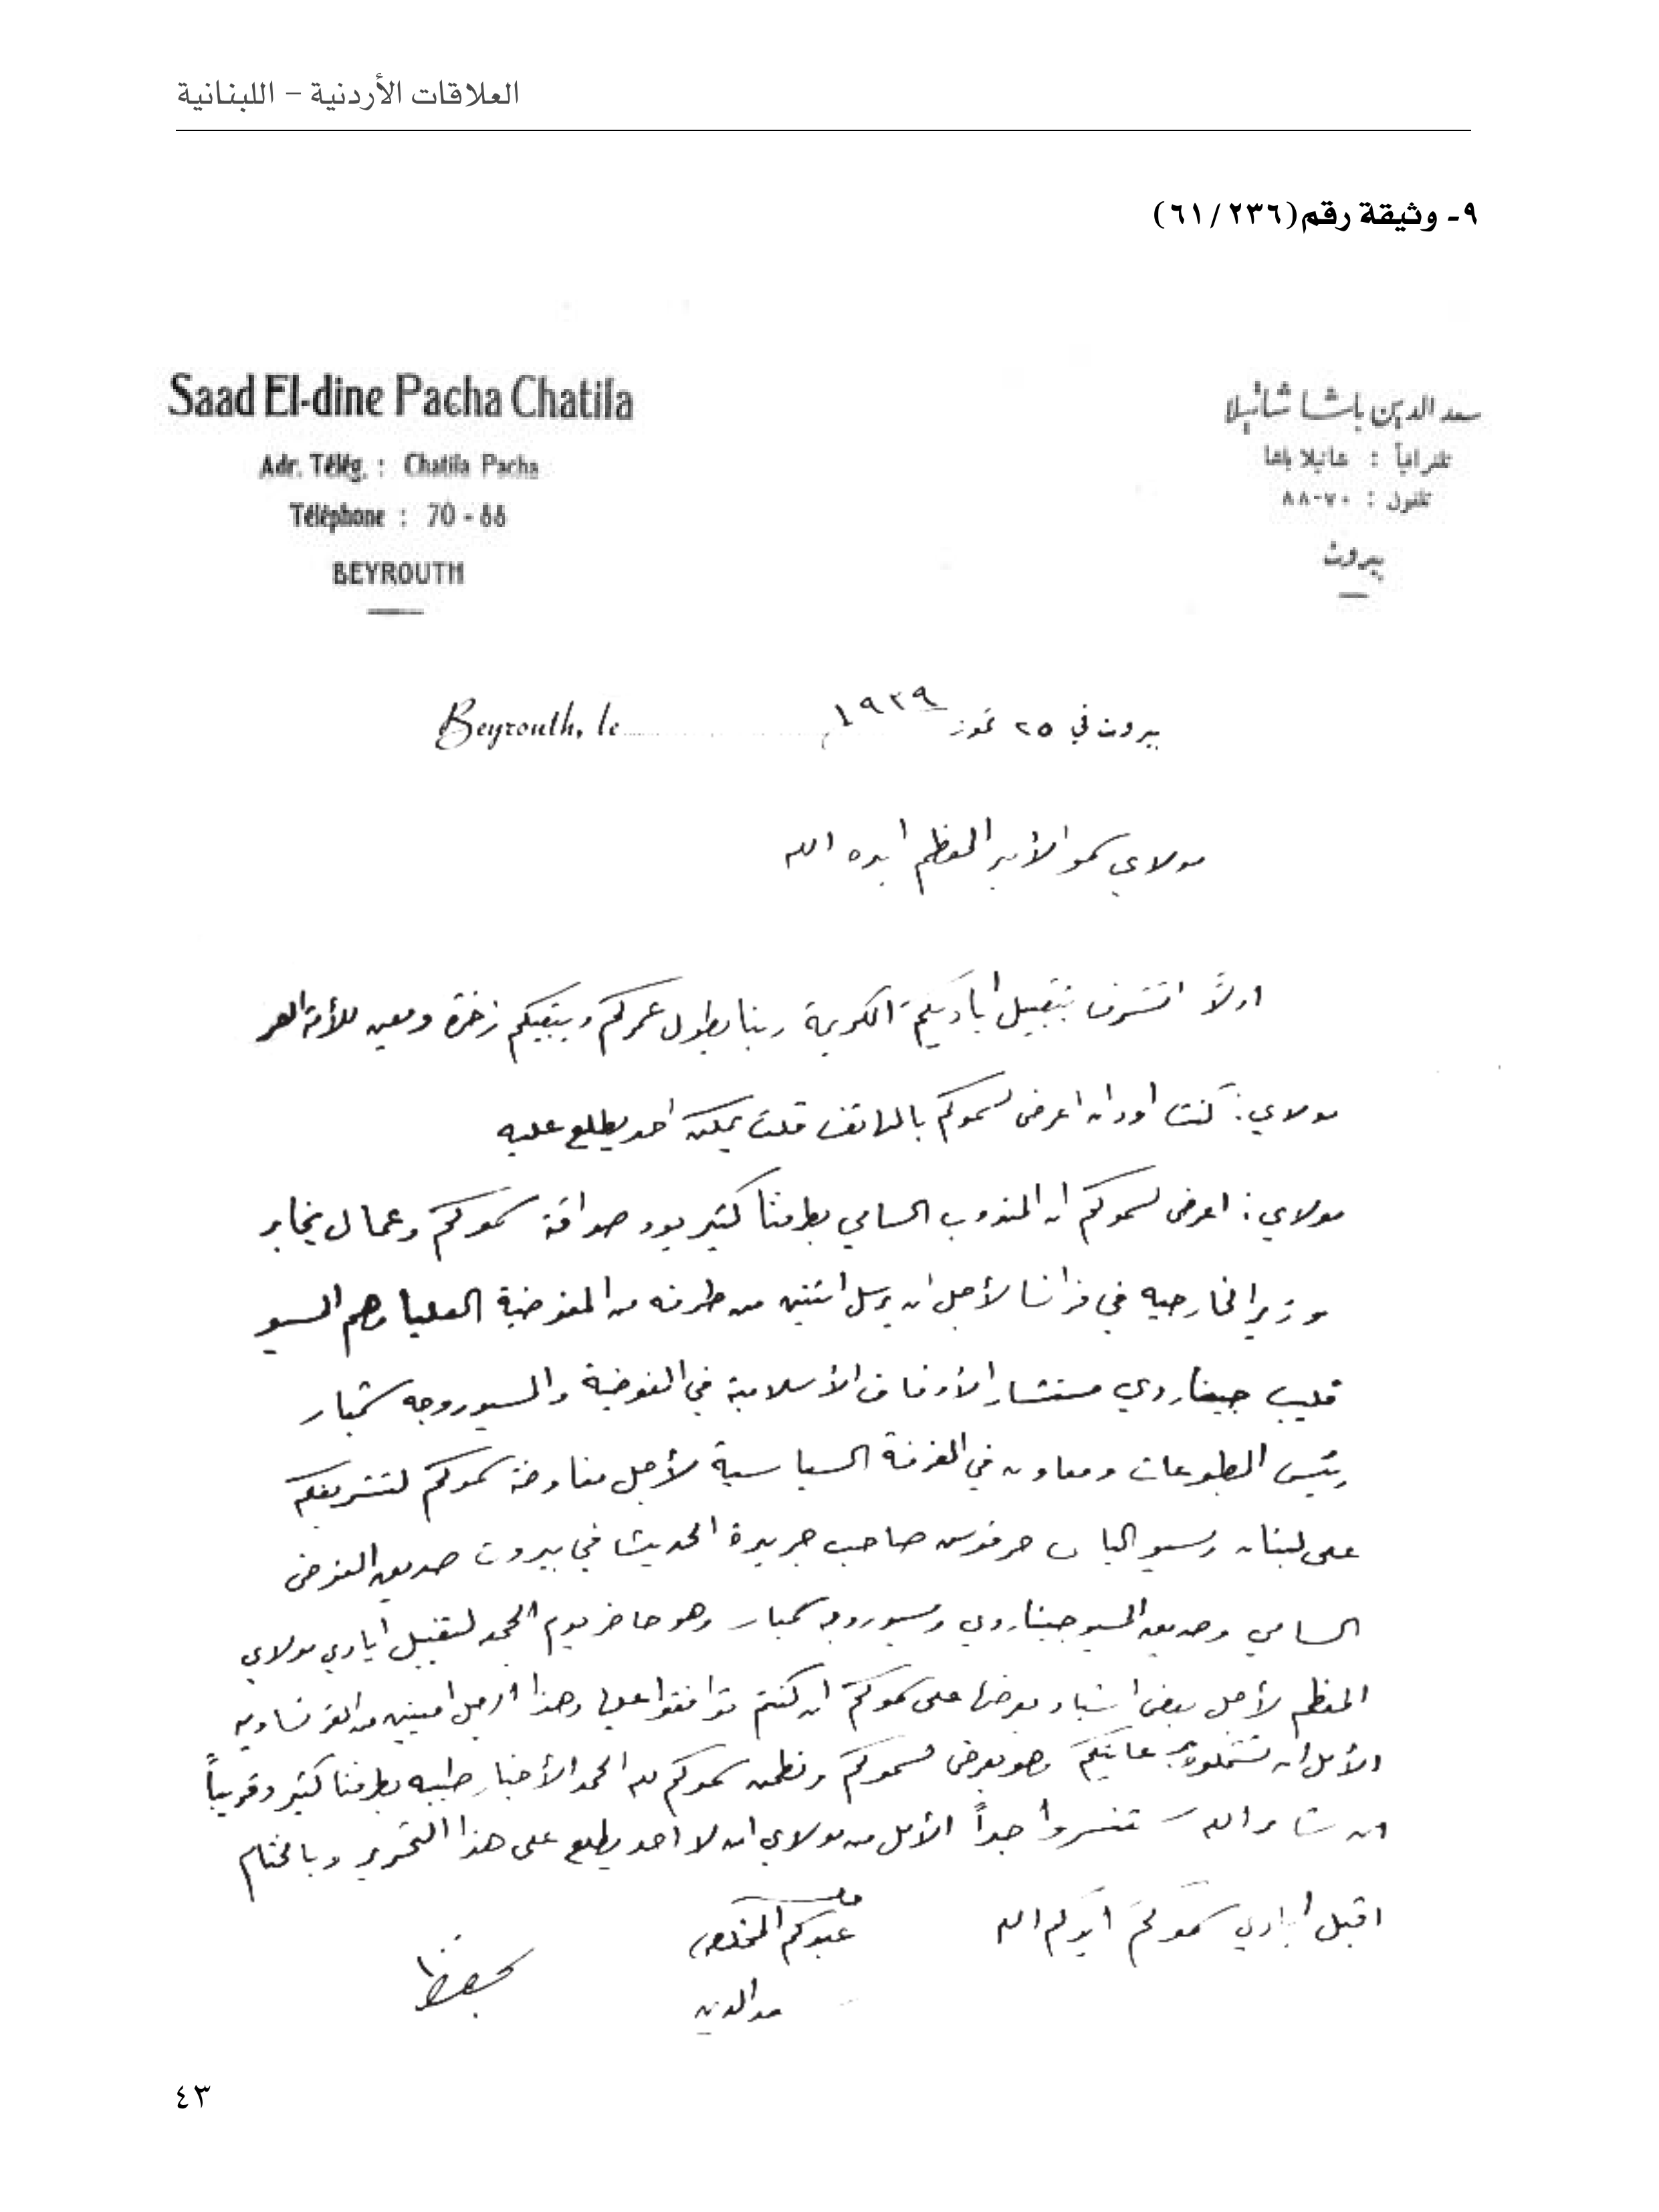 العلاقات الأردنية – اللبنانية
٩- وثيقة رقم(٦١/٢٣٦)
Saad El-dine Pacha Chatila
Adr. Télég. : Chatila Pacha
Téléphone : 70 - 88
BEYROUTH
سعد الدين باشا شاتيلا
تلغرافياً : شاتيلا باشا
تلفون : ٧٠-٨٨
بيروت
Beyrouth, le
بيروت في ٢٥ تموز ١٩٣٩
مولاي سمو الأمير المعظم ايده الله
اولاً اتشرف بتقبيل أياديكم الكريمة ربنا يطول عمركم ويبقيكم زخرة ومعين للأمة
مولاي: كنت اود ان اعرض لسموكم بالهاتف قلت يمكن احد يطلع عليه
مولاي: اعرض لسموكم ان المندوب السامي بطرفنا كثير يود صداقة سموكم وعمال يخابر
وزير الخارجيه في فرانسا لأجل ان يرسل اثنين من طرفه من المفوضية العليا وهم المسيو
جيناردي مستشار الأوقاف الأسلامية في المفوضية والمسيو روجه
رئيس المطبوعات ومعاون في الغرفة السياسية لأجل مفاوضة سموكم لتشريفكم
على لبنان ومسيو حرفوش صاحب جريدة الحديث في بيروت صديق المفوض
السامي وصديق المسيو جيناردي ومسيو روجه وهو حاضر يوم لتقبيل أيادي مولاي
المعظم لأجل بعض اشياء يعرضها على سموكم ان كنتم توافقوا عليها وهذا الرجل امين من الفرنساويه
الأمل ان بعنايتكم وهو يعرض لسموكم ونطمن سموكم لله الحمد الأخبار طيبه بطرفنا كثير وقريباً
ان شاء الله تنسروا جداً الأمل من مولاي ان لا احد يطلع على هذا التحرير وبالختام
اقبل أيادي سموكم ايدكم الله
عبدكم المخلص
سعد الدين
يحفظ
٤٣